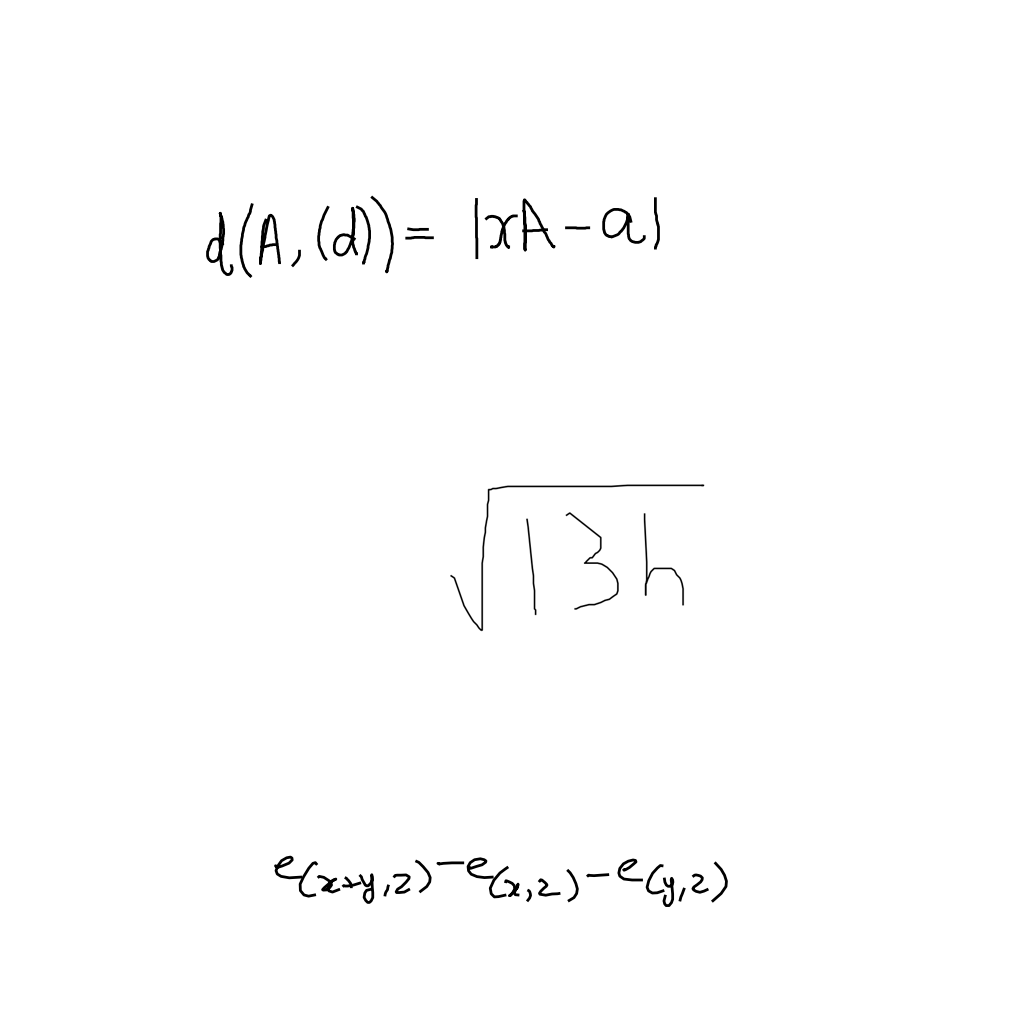 d(A,(d))= |xA-a|
√13h
e(x+y,z)-e(x,z)-e(y,z)